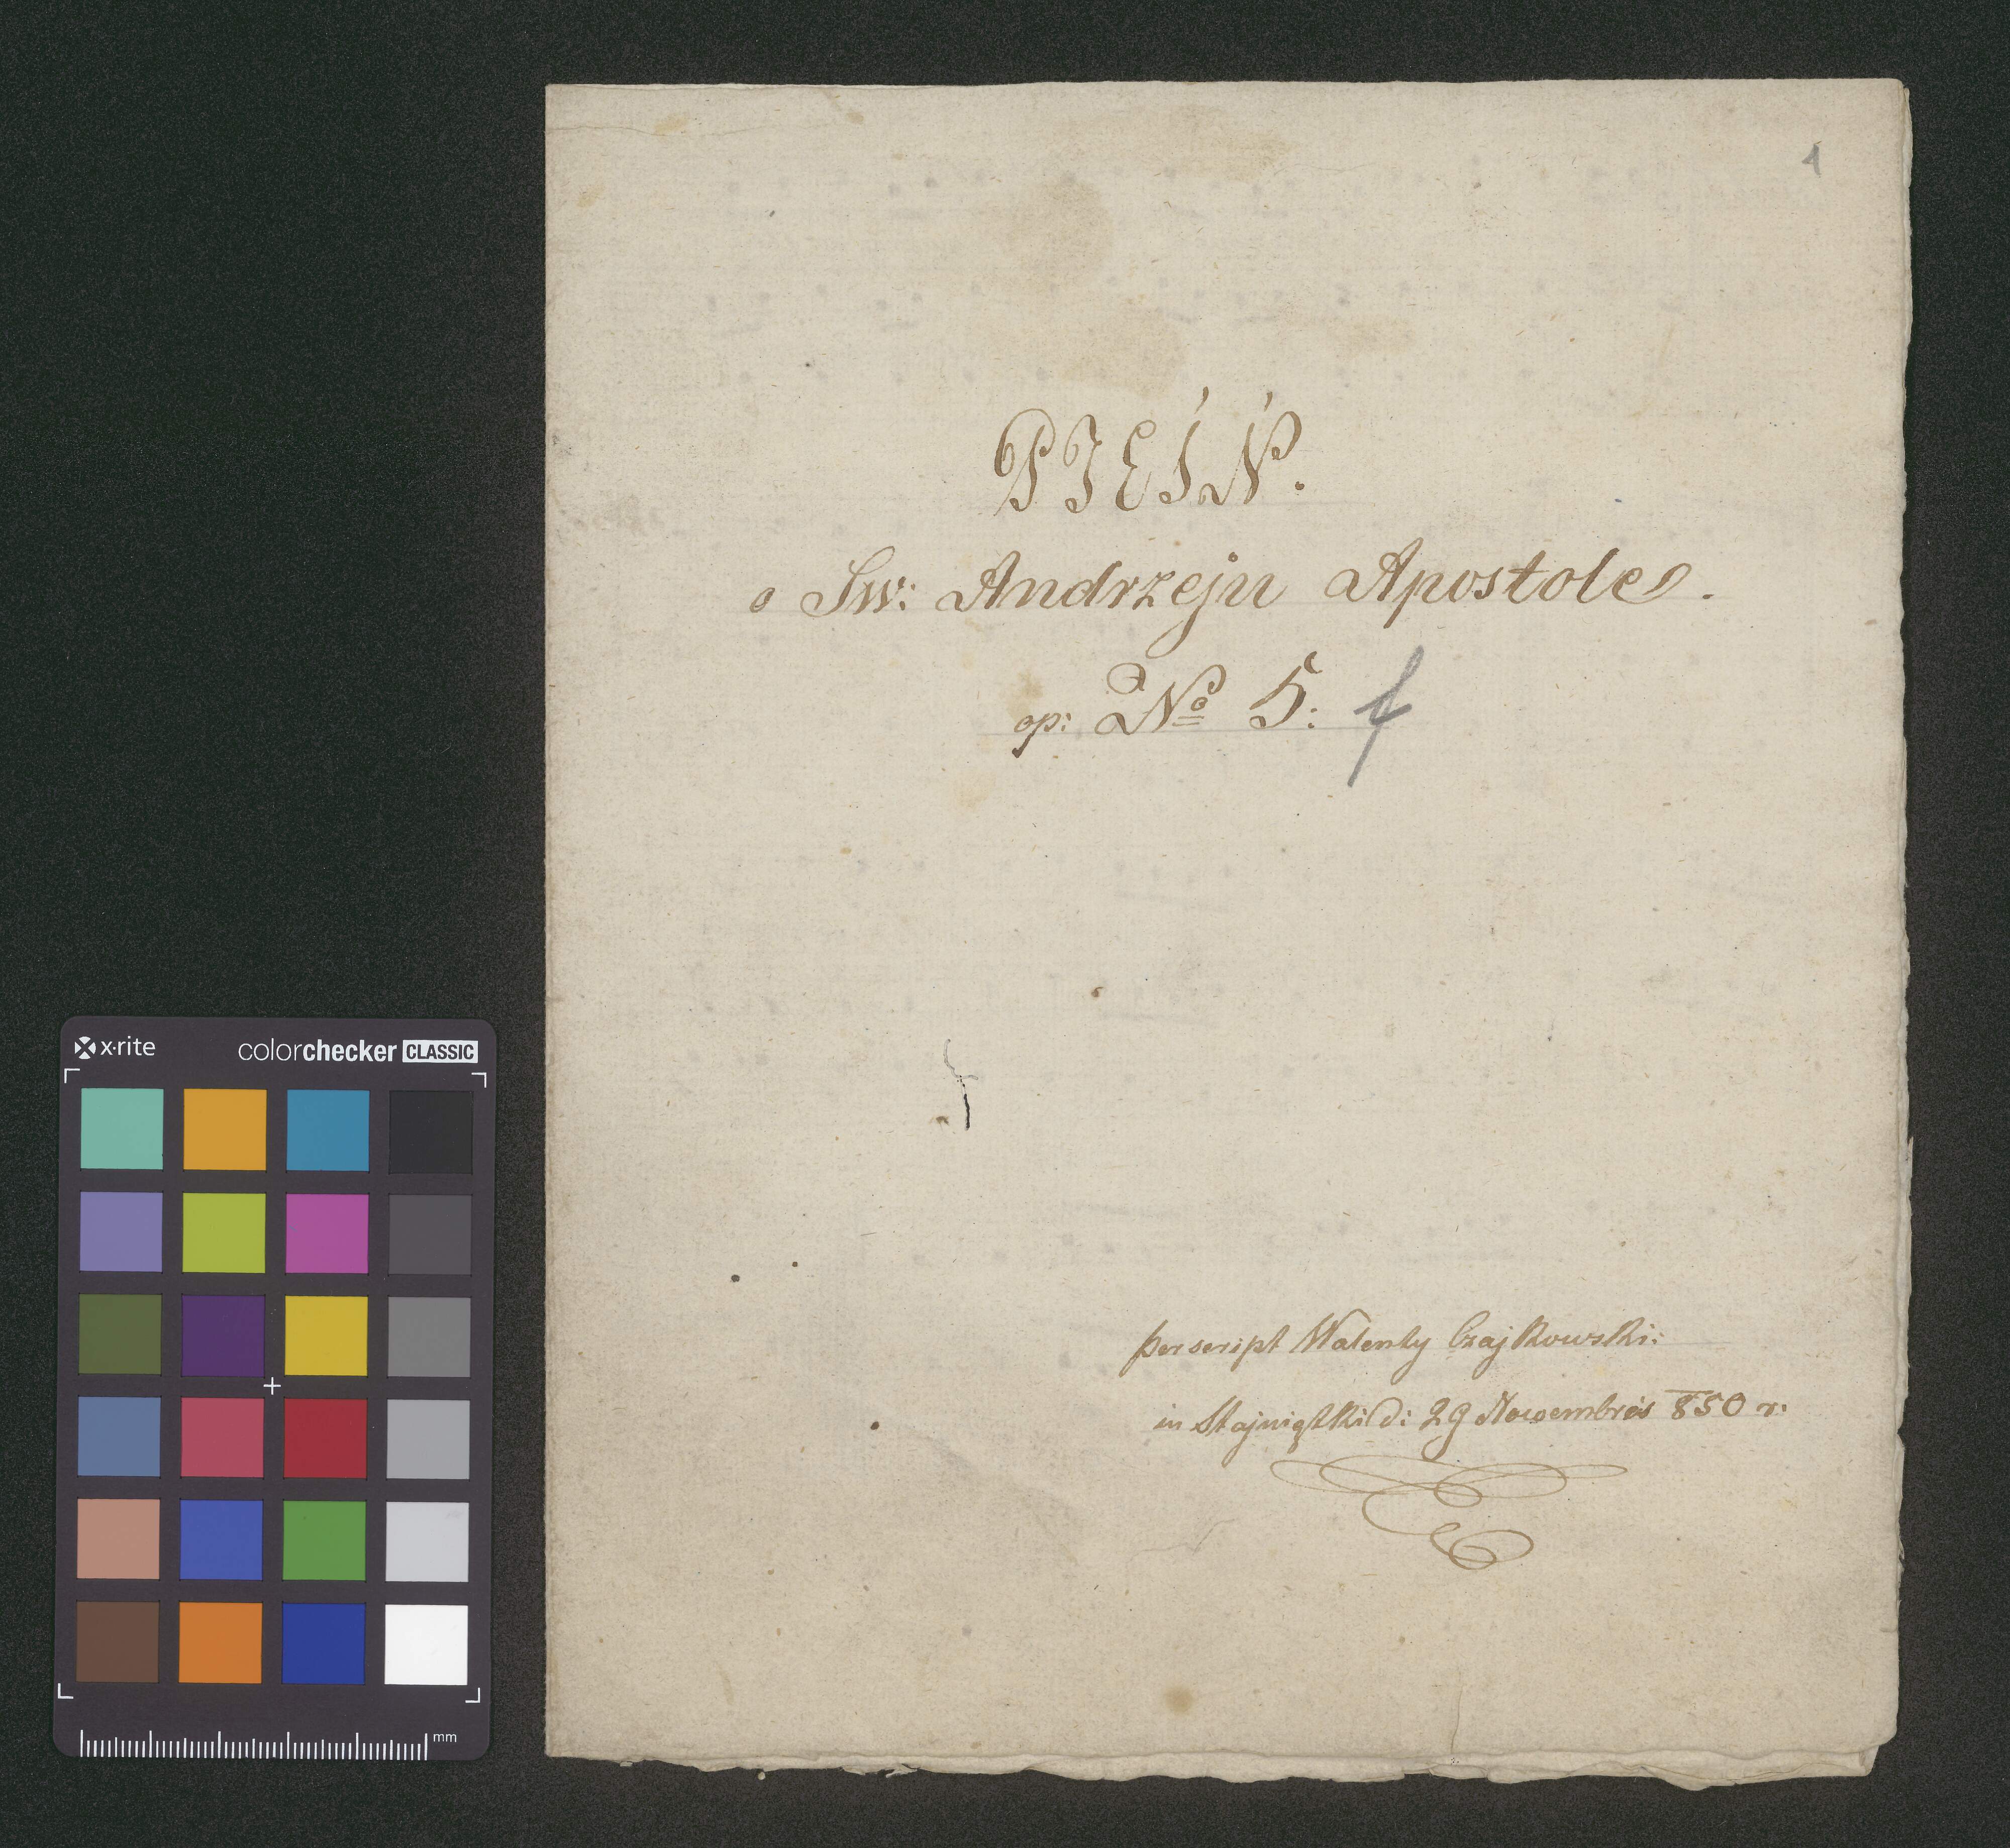 1
PJEŚŃ.
o Sw: Andrzeju Apostole.
op: No 5: f
perscript Walenty Czajkowski:
in Stajniątki d: 29 Nowembris 850 r:
x·rite
colorchecker CLASSIC
mm